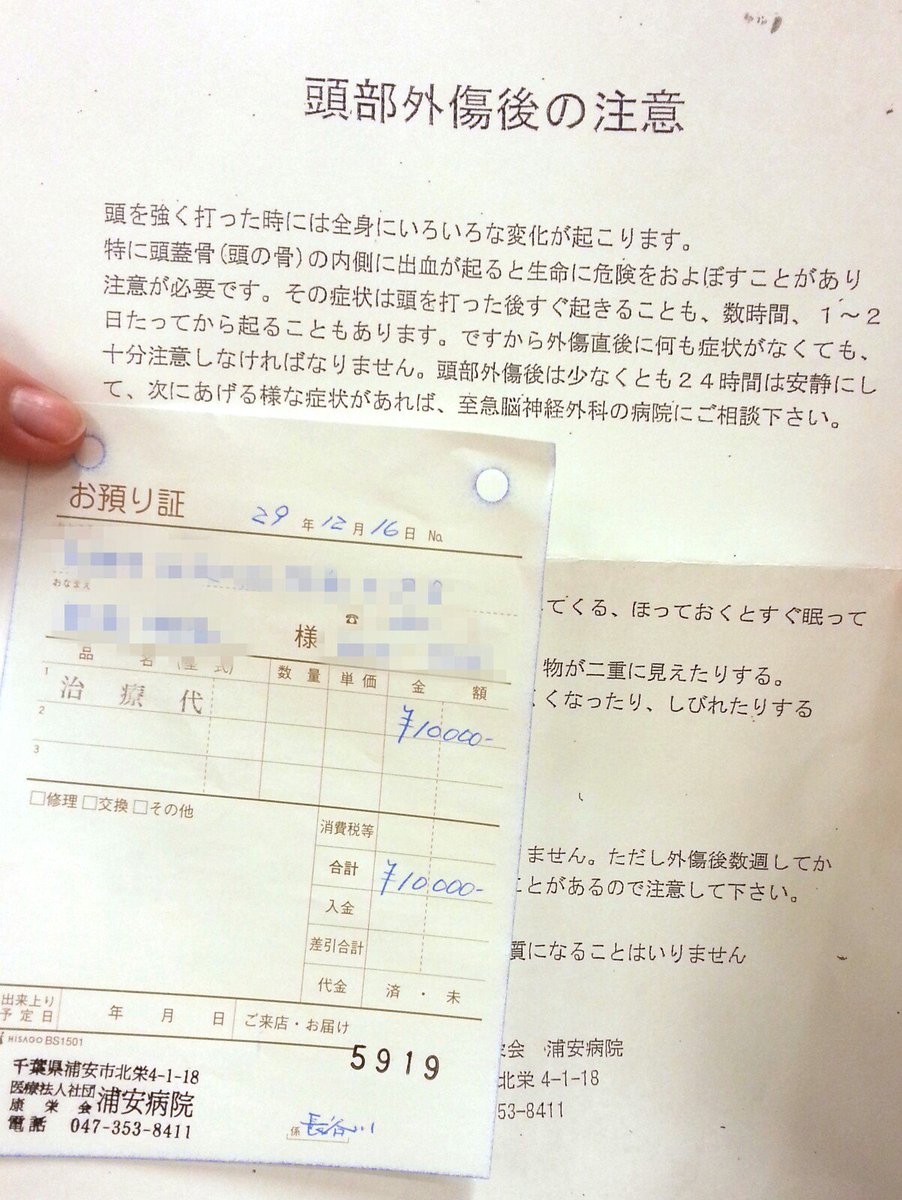 頭部外傷後の注意
頭を強く打った時には全身にいろいろな変化が起こります。
特に頭蓋骨(頭の骨)の内側に出血が起ると生命に危険をおよぼすことがあり
注意が必要です。その症状は頭を打った後すぐ起きることも、数時間、1〜2
日たってから起ることもあります。ですから外傷直後に何も症状がなくても、
十分注意しなければなりません。頭部外傷後は少なくとも24時間は安静にし
て、次にあげる様な症状があれば、至急脳神経外科の病院にご相談下さい。
てくる、ほっておくとすぐ眠って
物が二重に見えたりする。
くなったり、しびれたりする
ません。ただし外傷後数週してか
ことがあるので注意して下さい。
質になることはいりません
会 浦安病院
北栄 4-1-18
53-8411
お預り証
29年12月16日 No.
おなまえ
様 ☎
品名(型式) 数量 単価 金額
1 治療代 ¥10000-
2
3
□修理 □交換 □その他
消費税等
合計 ¥10000-
入金
差引合計
代金 済・未
出来上り予定日 年 月 日 ご来店・お届け
HISAGO BS1501
5919
千葉県浦安市北栄4-1-18
医療法人社団康栄会 浦安病院
電話 047-353-8411
係 長谷川